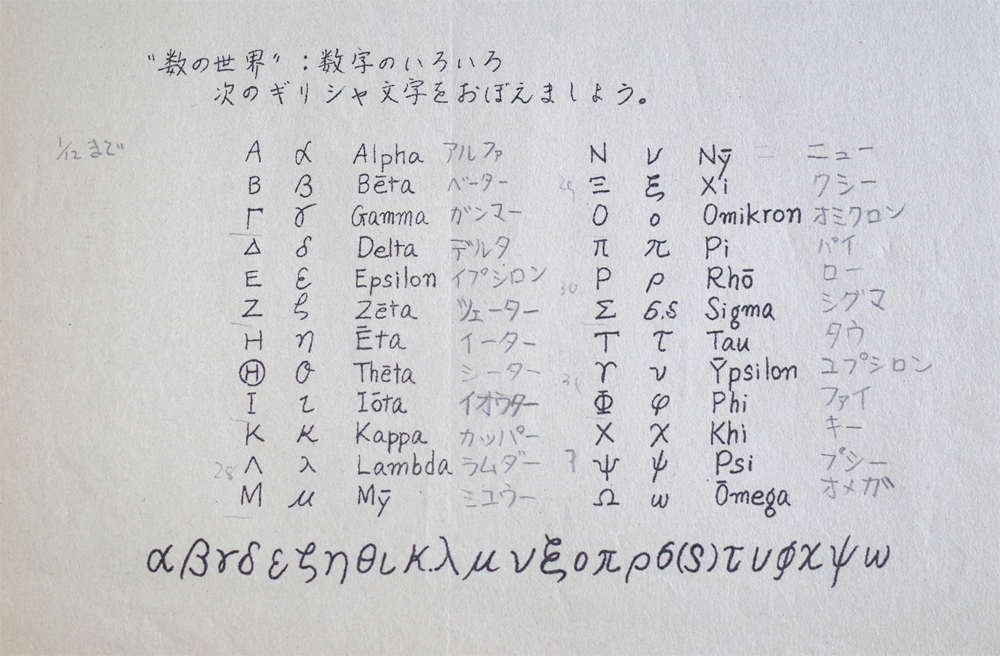 "数の世界"：数字のいろいろ
次のギリシャ文字をおぼえましょう。
1/12まで
Α α Alpha アルファ
Β β Bēta ベーター
Γ γ Gamma ガンマー
Δ δ Delta デルタ
Ε ε Epsilon イプシロン
Ζ ζ Zēta ツェーター
Η η Ēta イーター
Θ θ Thēta シーター
Ι ι Iōta イオウター
Κ κ Kappa カッパー
28 Λ λ Lambda ラムダー
Μ μ Mȳ ミユウー
Ν ν Nȳ ニュー
29 Ξ ξ Xi クシー
Ο ο Omikron オミクロン
Π π Pi パイ
30 Ρ ρ Rhō ロー
Σ σ,ς Sigma シグマ
Τ τ Tau タウ
31 Υ υ Ȳpsilon ユプシロン
Φ φ Phi ファイ
Χ χ Khi キー
Ψ ψ Psi プシー
Ω ω Ōmega オメガ
α β γ δ ε ζ η θ ι κ λ μ ν ξ ο π ρ σ(ς) τ υ φ χ ψ ω